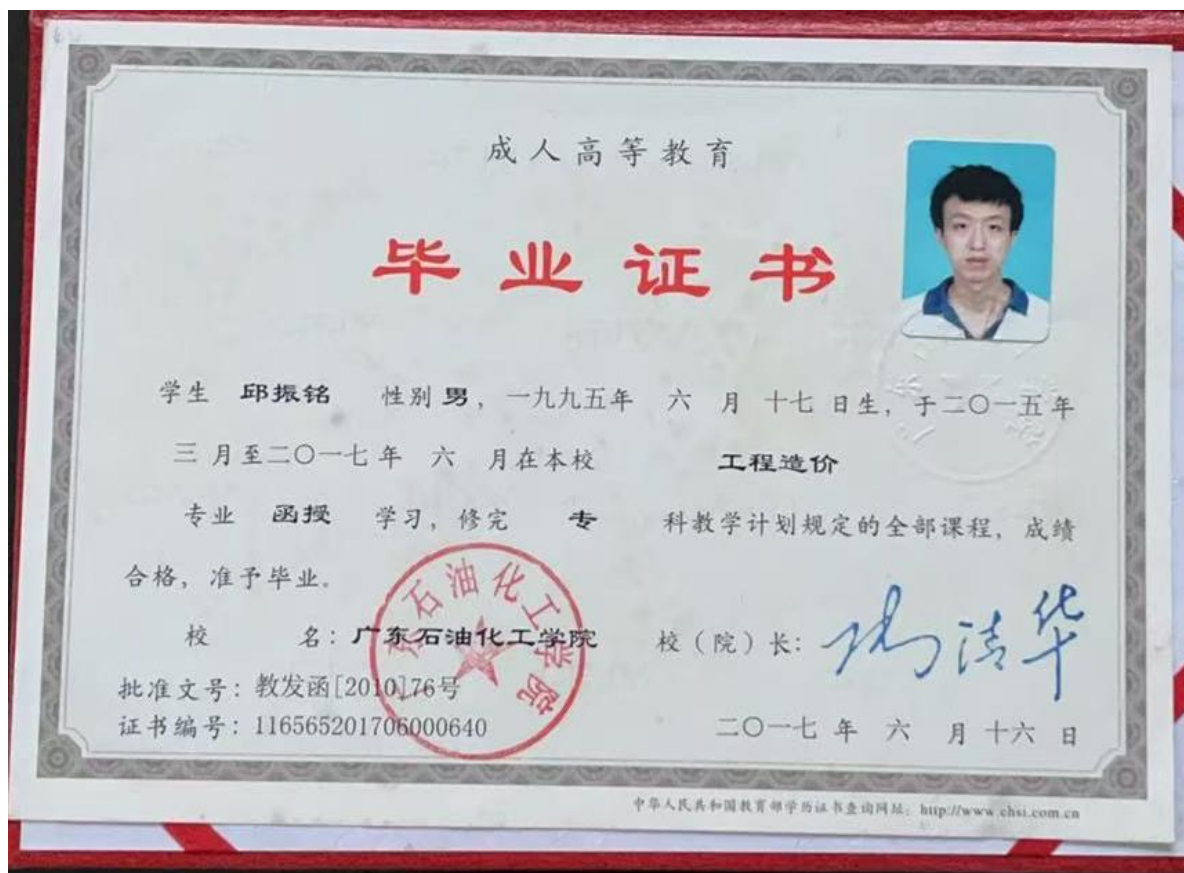 成人高等教育
毕业证书
学生 邱振铭 性别 男，一九九五年 六 月 十七 日生，于二〇一五年
三 月至二〇一七年 六 月在本校 工程造价
专业 函授 学习，修完 专 科教学计划规定的全部课程，成绩
合格，准予毕业。
校 名：广东石油化工学院 校（院）长：
批准文号：教发函[2010]76号
证书编号：116565201706000640 二〇一七 年 六 月 十六 日
广东石油化工学院
中华人民共和国教育部学历证书查询网址：http://www.chsi.com.cn